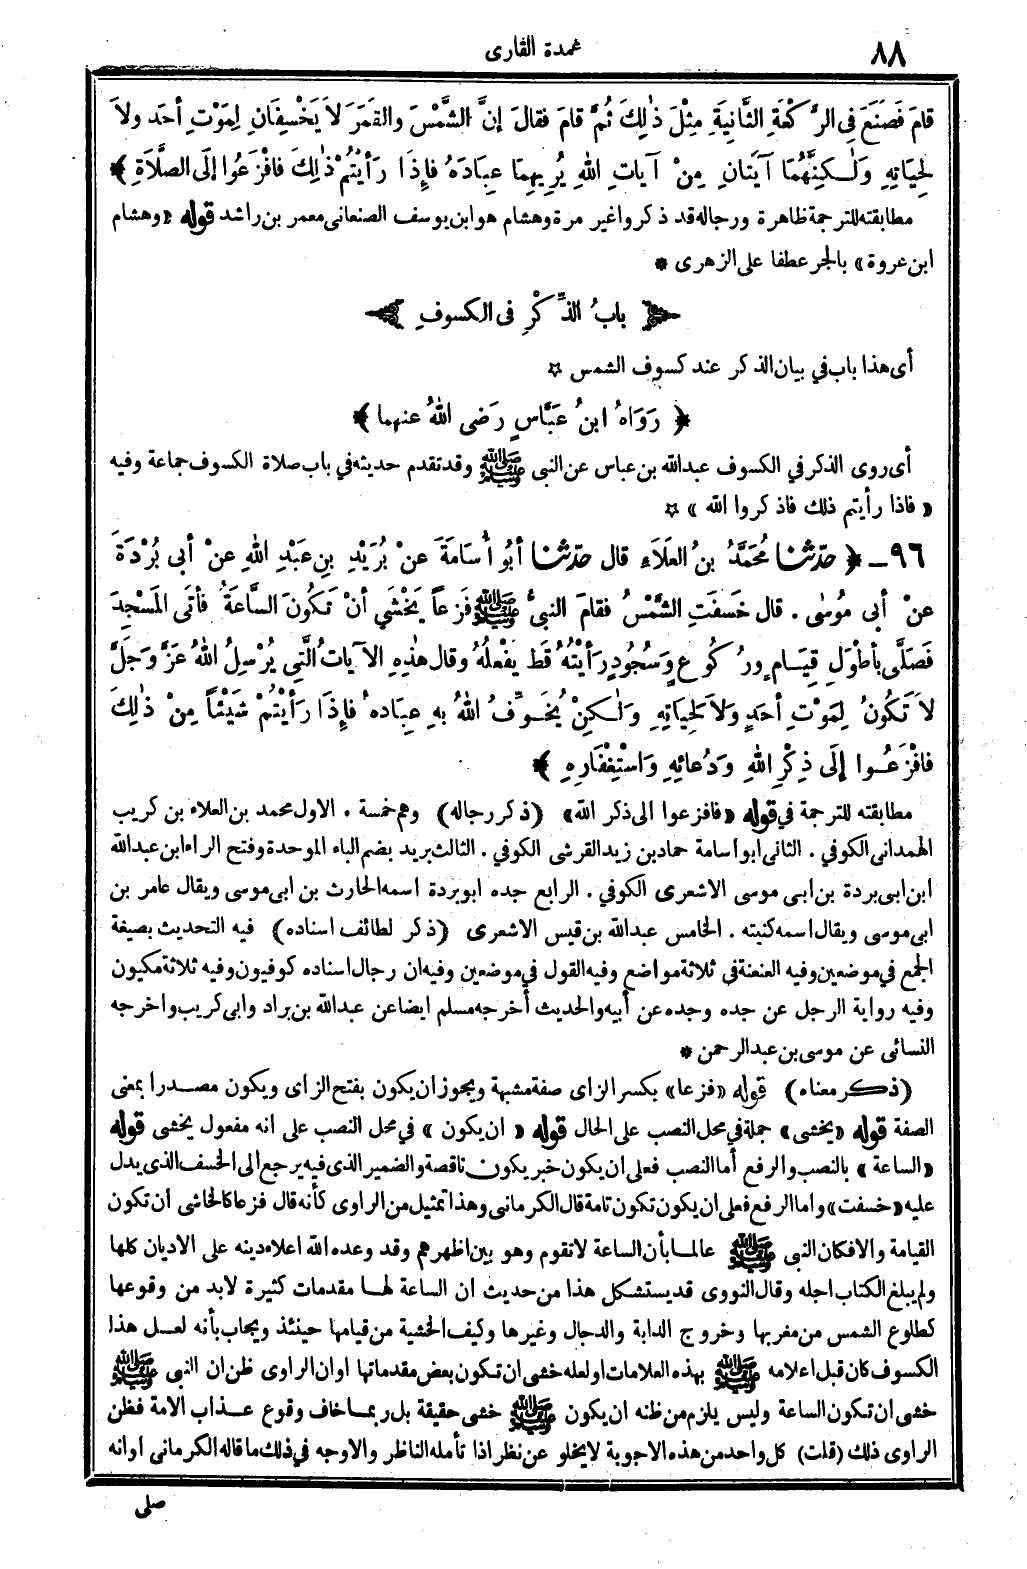 ٨٨
عمدة القارى
قامَ فَصَنَعَ فِى الرَّكْعَةِ الثَّانِيَةِ مِثْلَ ذٰلِكَ ثُمَّ قامَ فقالَ إنَّ الشَّمْسَ والقَمَرَ لاَ يَخْسِفَانِ لِمَوْتِ أحَد ولاَ
لِحَيَاتِهِ وَلٰكِنَّهُمَا آيَتَانِ مِنْ آياتِ اللهِ يُرِيهِمَا عِبَادَهُ فإذَا رَأيْتُمْ ذٰلِكَ فافْزَعُوا إلَى الصَّلاَةِ ﴾
مطابقته للترجمة ظاهرة ورجاله قد ذكروا غير مرة وهشام هو ابن يوسف الصنعانى معمر بن راشد قوله «وهشام
ابن عروة» بالجر عطفا على الزهرى *
﴿ بابُ الذِّكْرِ فى الكسوفِ ﴾
أى هذا باب في بيان الذكر عند كسوف الشمس ☆
﴿ رَوَاهُ ابنُ عَبَّاسٍ رَضى اللهُ عنهما ﴾
أى روى الذكر في الكسوف عبدالله بن عباس عن النبى ﷺ وقد تقدم حديثه في باب صلاة الكسوف جماعة وفيه
« فاذا رأيتم ذلك فاذكروا الله » ☆
٩٦ـ ﴿ حدّثنا مُحَمَّدُ بنُ العَلَاءِ قال حدّثنا أبُو أُسَامَةَ عنْ بُرَيْدِ بنِ عَبْدِ اللهِ عنْ أبى بُرْدَةَ
عنْ أبى مُوسٰى . قال خَسَفَتِ الشَّمْسُ فقامَ النبىُّ ﷺ فَزِعاً يَخْشَي أنْ تَكُونَ السَّاعَةُ فأتَى المَسْجِدَ
فَصَلَّى بأطْوَلِ قِيَامٍ ورُكُوعٍ وَسُجُودٍ رَأيْتُهُ قَط يَفْعلُهُ وقال هٰذِهِ الآياتُ الَّتِي يُرْسِلُ اللهُ عَزَّ وَجَلَّ
لاَ تَكُونُ لِمَوْتِ أحَدٍ وَلاَ لِحَيَاتِهِ وَلٰكِنْ يُخَوِّفُ اللهُ بهِ عِبادهُ فإذَا رَأيْتُمْ شَيْئاً مِنْ ذٰلِكَ
فافْزَعُوا إلَى ذِكْرِ اللهِ وَدُعائِهِ وَاسْتِغْفَارِهِ ﴾
مطابقته للترجمة في قوله «فافزعوا الى ذكر الله» (ذكر رجاله) وهم خمسة . الاول محمد بن العلاء بن كريب
الهمدانى الكوفي . الثانى ابو أسامة حماد بن زيد القرشى الكوفي . الثالث بريد بضم الباء الموحدة وفتح الراء ابن عبدالله
ابن ابى بردة بن ابى موسى الاشعرى الكوفي . الرابع جده ابو بردة اسمه الحارث بن ابى موسى ويقال عامر بن
ابى موسى ويقال اسمه كنيته . الخامس عبدالله بن قيس الاشعرى (ذكر لطائف اسناده) فيه التحديث بصيغة
الجمع في موضعين وفيه العنعنة في ثلاثة مواضع وفيه القول في موضعين وفيه ان رجال اسناده كوفيون وفيه ثلاثة مكيون
وفيه رواية الرجل عن جده وجده عن أبيه والحديث أخرجه مسلم ايضا عن عبدالله بن براد وابى كريب واخرجه
النسائى عن موسى بن عبدالرحمن *
(ذكر معناه) قوله «فزعا» بكسر الزاى صفة مشبهة ويجوز ان يكون بفتح الزاى ويكون مصدرا بمعنى
الصفة قوله «يخشى» جملة في محل النصب على الحال قوله « ان يكون » في محل النصب على انه مفعول يخشى قوله
«الساعة» بالنصب والرفع أما النصب فعلى ان يكون خبر يكون ناقصة والضمير الذى فيه يرجع الى الخسف الذى يدل
عليه «خسفت» واما الرفع فعلى ان يكون تكون تامة قال الكرمانى وهذا تمثيل من الراوى كأنه قال فزعا كالخاشى أن تكون
القيامة والا فكان النبى ﷺ عالما بأن الساعة لا تقوم وهو بين اظهرهم وقد وعده الله اعلاء دينه على الاديان كلها
ولم يبلغ الكتاب اجله وقال النووى قد يستشكل هذا من حديث ان الساعة لها مقدمات كثيرة لابد من وقوعها
كطلوع الشمس من مغربها وخروج الدابة والدجال وغيرها وكيف الخشية من قيامها حينئذ ويجاب بأنه لعل هذا
الكسوف كان قبل اعلامه ﷺ بهذه العلامات او لعله خشى ان تكون بعض مقدماتها او ان الراوى ظن ان النبى ﷺ
خشى ان تكون الساعة وليس يلزم من ظنه ان يكون ﷺ خشى حقيقة بل ربما خاف وقوع عذاب الامة فظن
الراوى ذلك (قلت) كل واحد من هذه الاجوبة لا يخلو عن نظر اذا تأمله الناظر والاوجه في ذلك ما قاله الكرمانى او انه
صلى